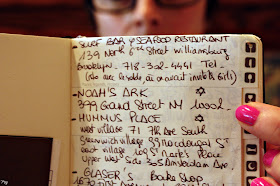 SURF BAR & SEAFOOD RESTAURANT
139 North 6th Street Williamsburg
Brooklyn - 718-302-4441 Tel.
NOAH'S ARK
399 Grand Street NY
HUMMUS PLACE
west village 71 7th Ave South
Greenwich village 99 MacDougal St
east village 109 St Mark's Place
upper west side 305 Amsterdam Ave
GLASER'S Bake Shop